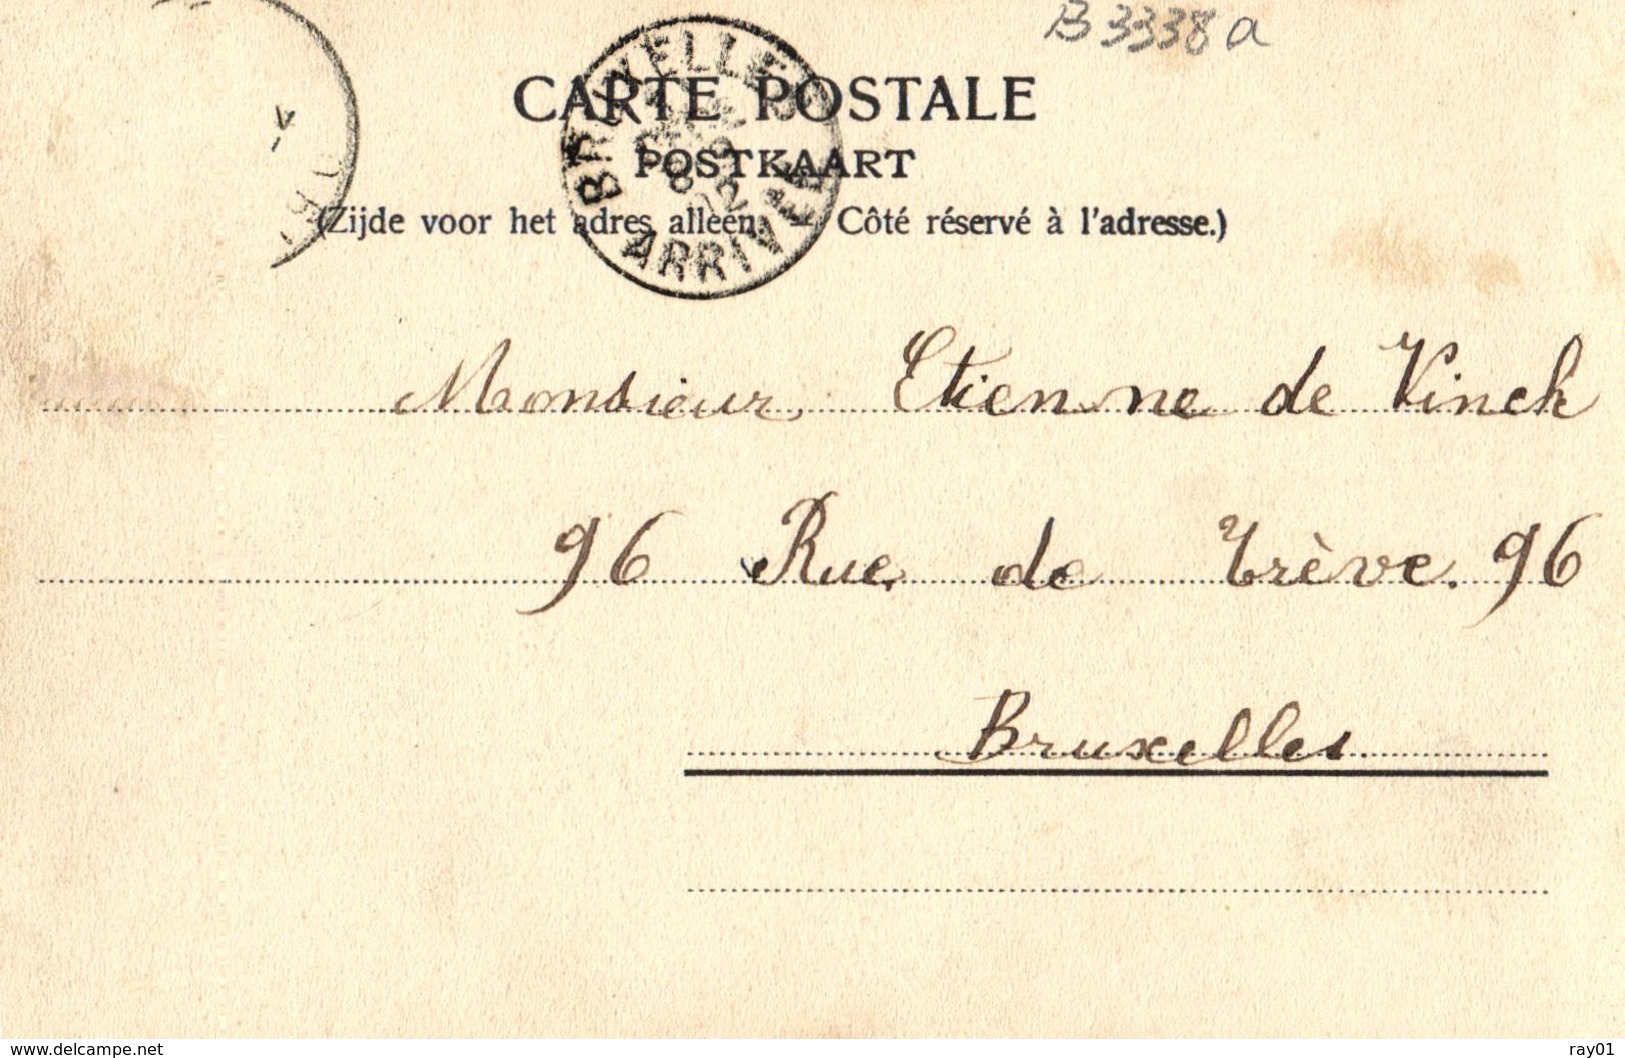 B 3338 a
CARTE POSTALE
POSTKAART
(Zijde voor het adres alleen. — Côté réservé à l'adresse.)
BRUXELLES
ARRIVÉE
Monsieur Etienne de Vinck
96 Rue de Trève. 96
Bruxelles
www.delcampe.net
ray01